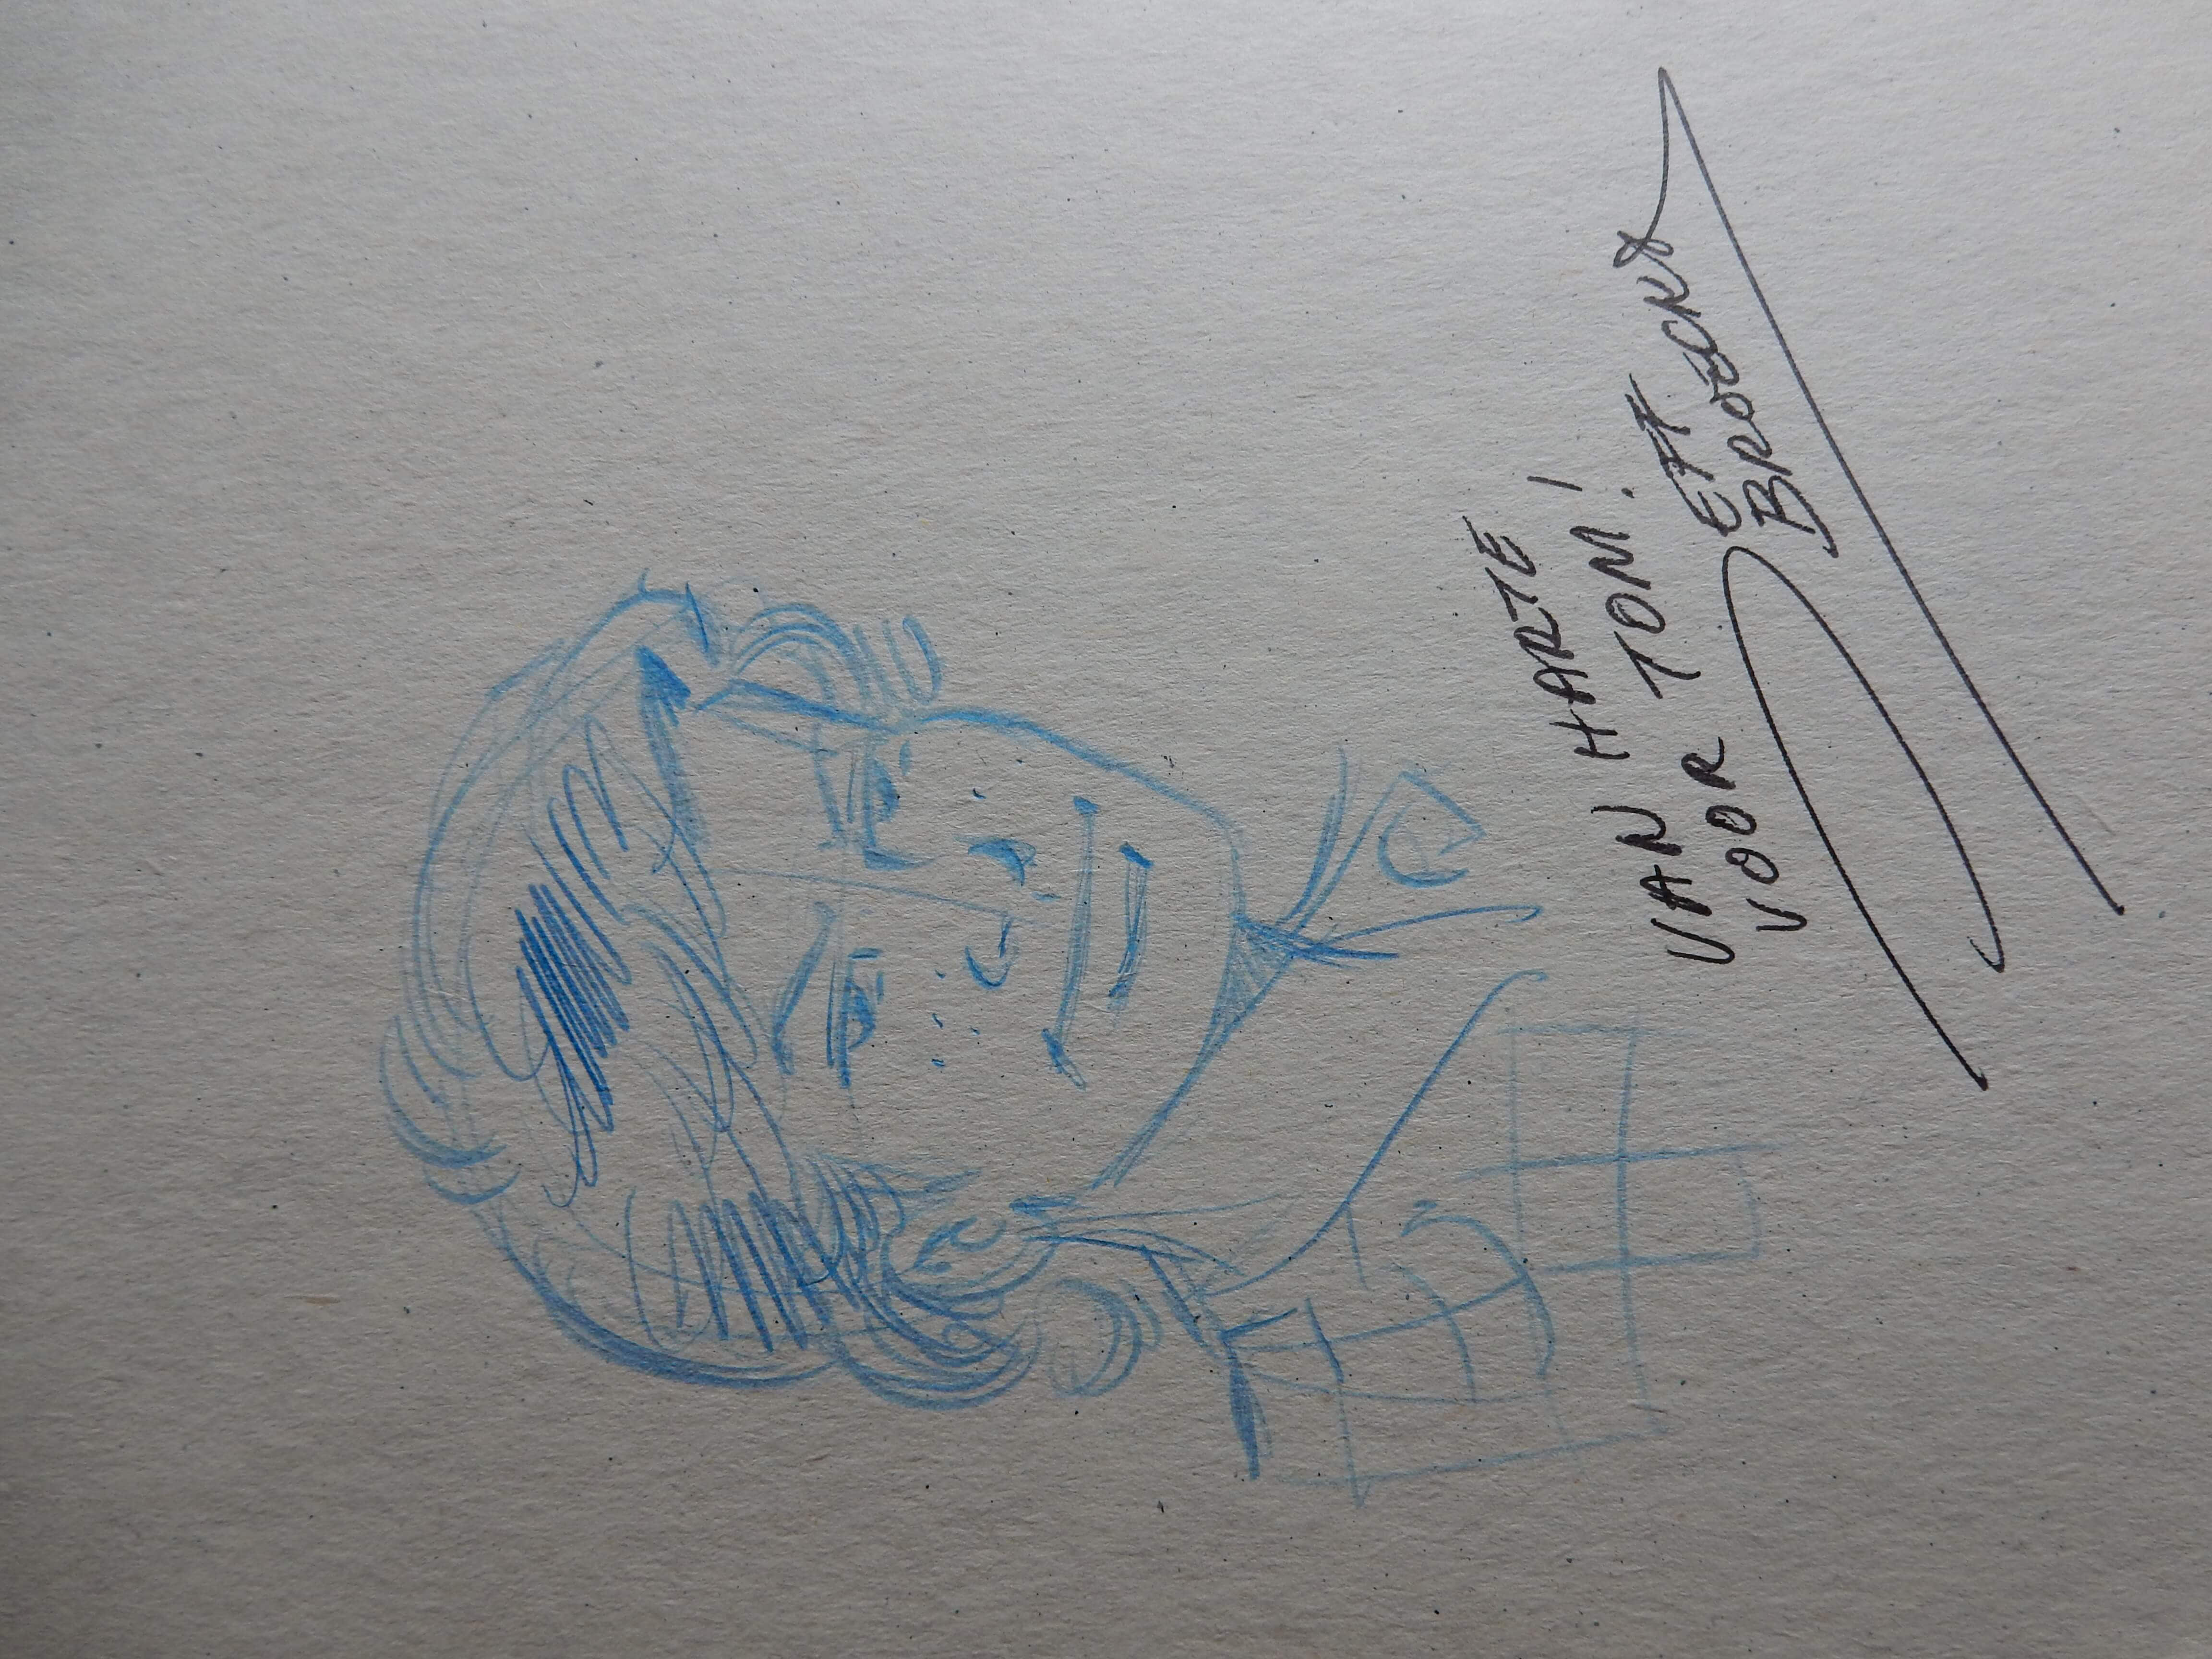 VAN HARTE
VOOR TOM!
JEFF
BROECKX